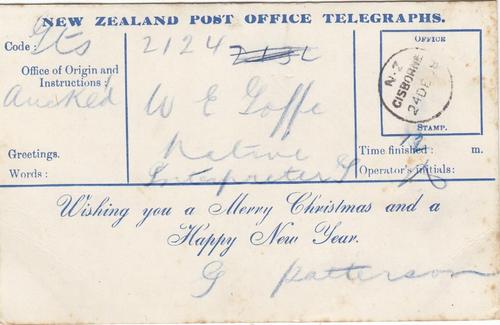 NEW ZEALAND POST OFFICE TELEGRAPHS.
Code: Gts
2124
OFFICE
Office of Origin and
Instructions:
Auckld
W E Goffe
N.Z
GISBORNE
24 DE
STAMP.
Greetings.
Native
Time finished: m.
Words:
Interpreter
Operator's initials:
Wishing you a Merry Christmas and a
Happy New Year.
G Patterson